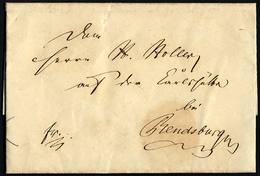 Dem
Herrn H. Holler
auf der Carlshütte
bei
Rendsburg
fr.